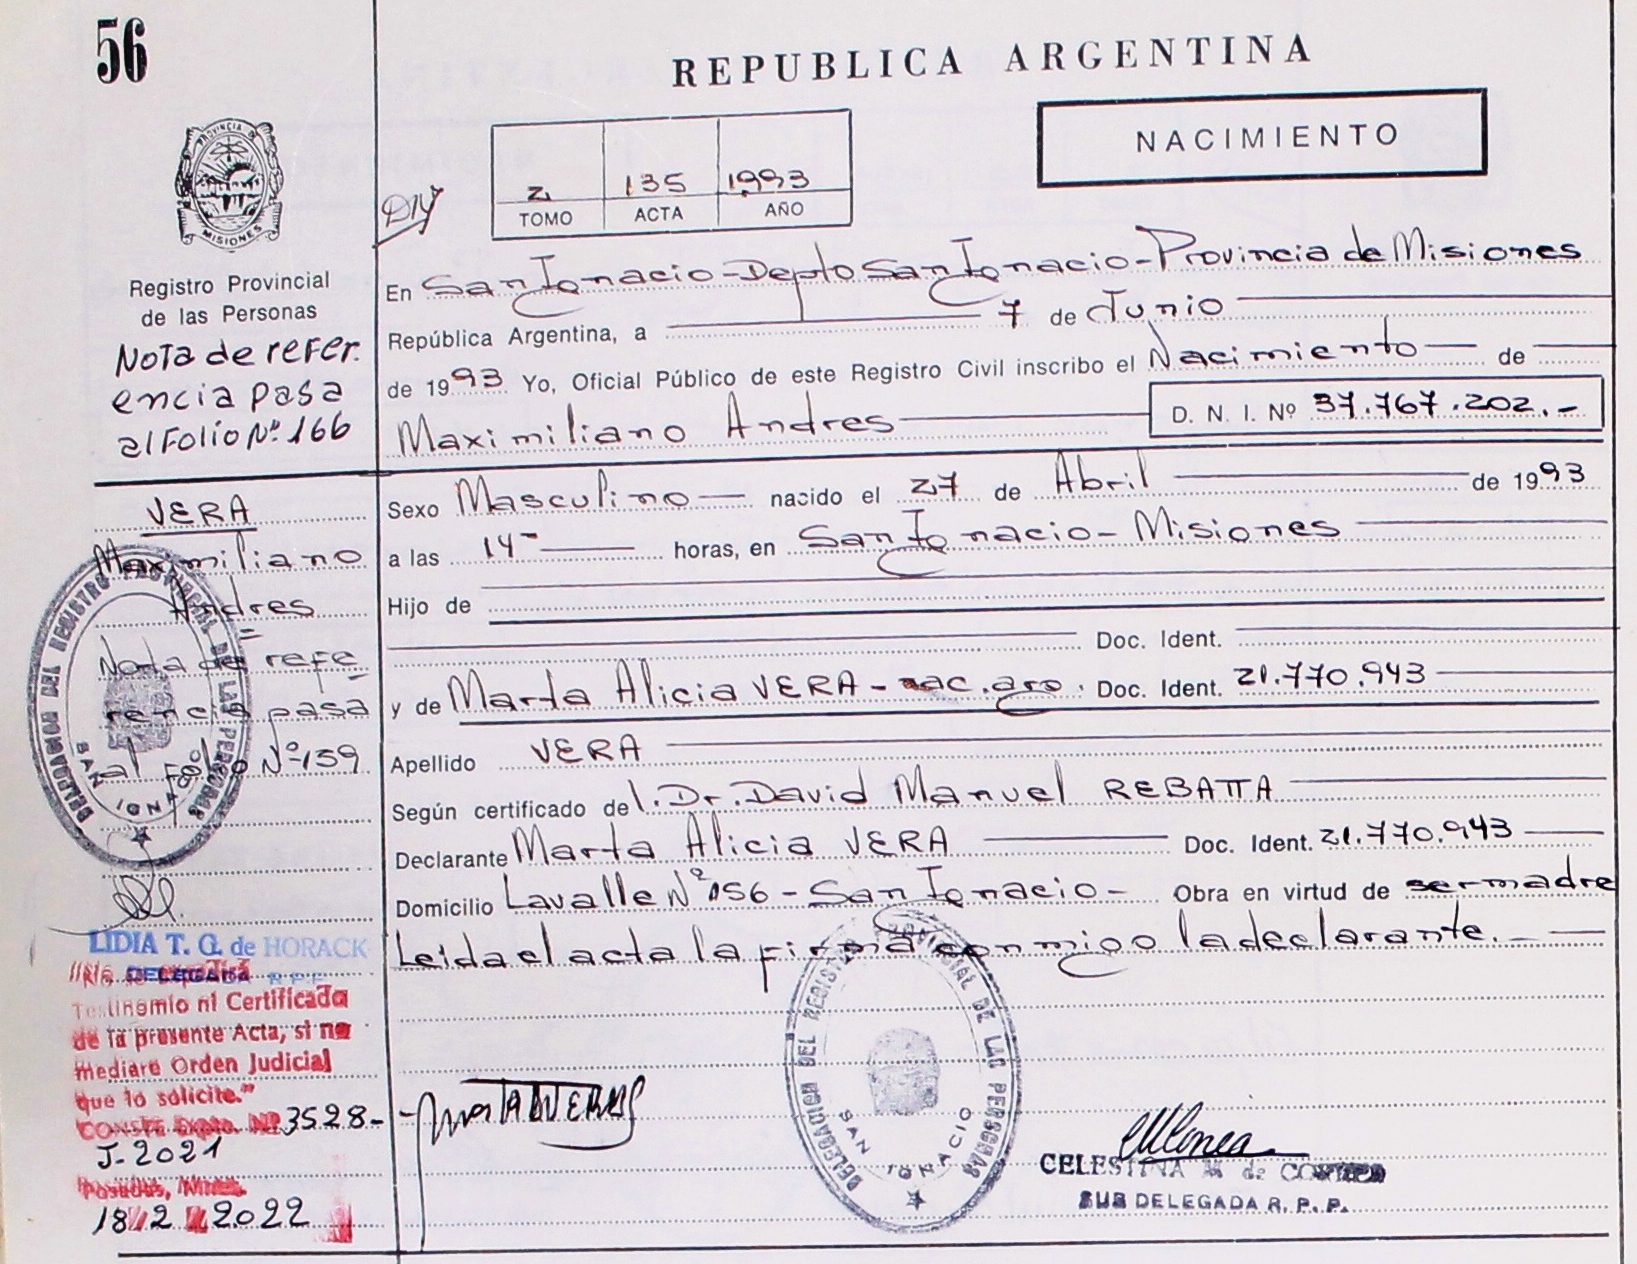 56
REPUBLICA ARGENTINA
NACIMIENTO
PROVINCIA DE
MISIONES
2 135 1993
TOMO ACTA AÑO
Registro Provincial
de las Personas
Nota de refer.
encia pasa
al Folio Nº 166
En San Ignacio - Depto San Ignacio - Provincia de Misiones
República Argentina, a 7 de Junio
de 1993 Yo, Oficial Público de este Registro Civil inscribo el Nacimiento de
Maximiliano Andres D. N. I. Nº 37.767.202.-
VERA
Maximiliano
Andres
Nota de refe
rencia pasa
al Folio Nº 159
Sexo Masculino nacido el 27 de Abril de 1993
a las 14 horas, en San Ignacio - Misiones
Hijo de
Doc. Ident.
y de Marta Alicia VERA - nac. arg. Doc. Ident. 21.770.943
Apellido VERA
Según certificado del. Dr. David Manuel REBATTA
Declarante Marta Alicia VERA Doc. Ident. 21.770.943
Domicilio Lavalle Nº 156 - San Ignacio - Obra en virtud de ser madre
Leida el acta la firma conmigo la declarante.-
DELEGACION DEL REGISTRO PROVINCIAL DE LAS PERSONAS
SAN IGNACIO
LIDIA T. G. de HORACK
DELEGADA R. P. P.
Testimonio ni Certificado
de la presente Acta, si no
mediare Orden Judicial
que lo solicite."
CONSTE Expte. Nº 3528-
J-2021
Posadas, Mnes.
18 2 2022
DELEGACION DEL REGISTRO PROVINCIAL DE LAS PERSONAS
SAN IGNACIO
CELESTINA M. de
SUB DELEGADA R. P. P.